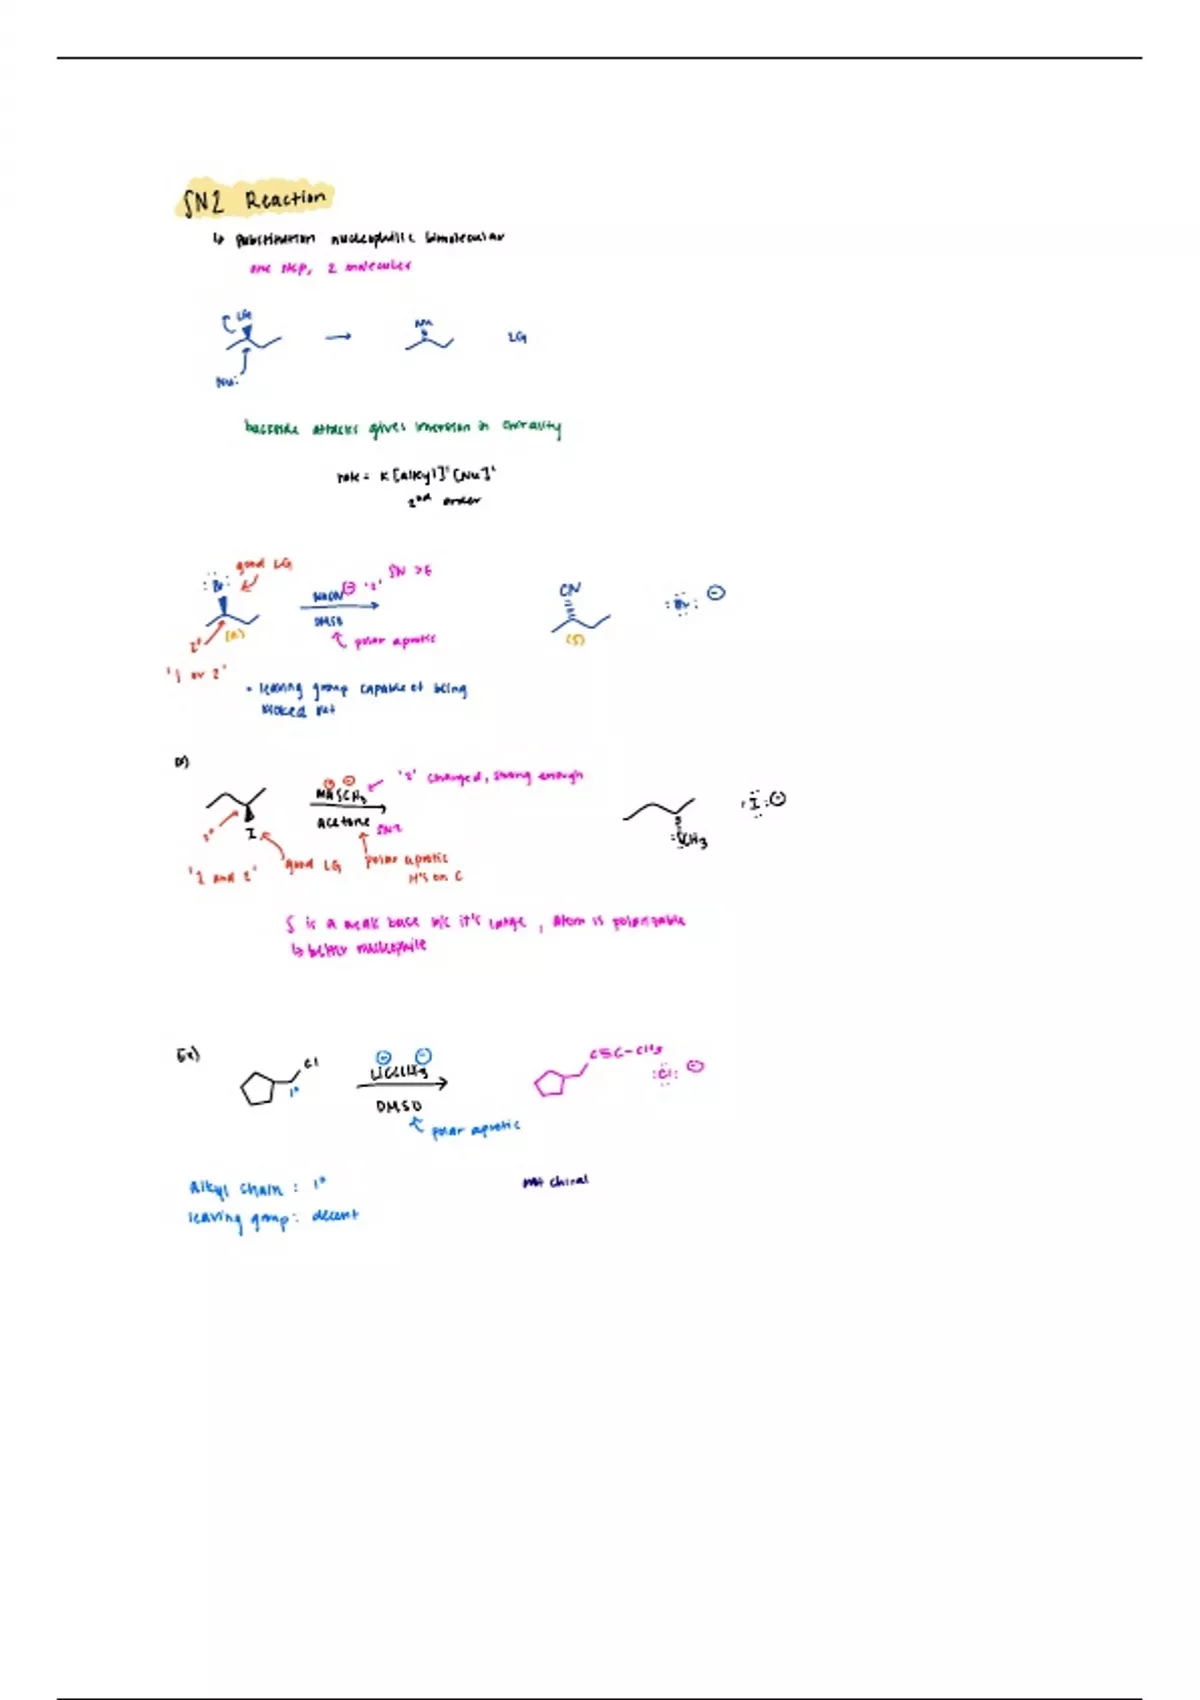 SN2 Reaction
↳ Substitution nucleophilic bimolecular
one step, 2 molecules
LG
Nu
→ LG
Nu:
backside attacks gives inversion in chirality
rate = K [alkyl]¹ [Nu]¹
2nd order
good LG
:Br: NaCN ⊖ '2' SN > E CN :Br: ⊖
DMSO
2° (R) ↖ polar aprotic (S)
'1 or 2'
• leaving group capable of being
kicked out
'2' charged, strong enough
⊕ ⊖
NaSCH3 :I: ⊖
acetone SN2
2° I SCH3
'2 and 2' good LG polar aprotic
H's on C
S is a weak base b/c it's large, atom is polarizable
↳ better nucleophile
Ex) Cl ⊕ ⊖ C≡C-CH3
LiCCCH3 :Cl: ⊖
1°
DMSO
↖ polar aprotic
Alkyl chain: 1° not chiral
leaving group: decent